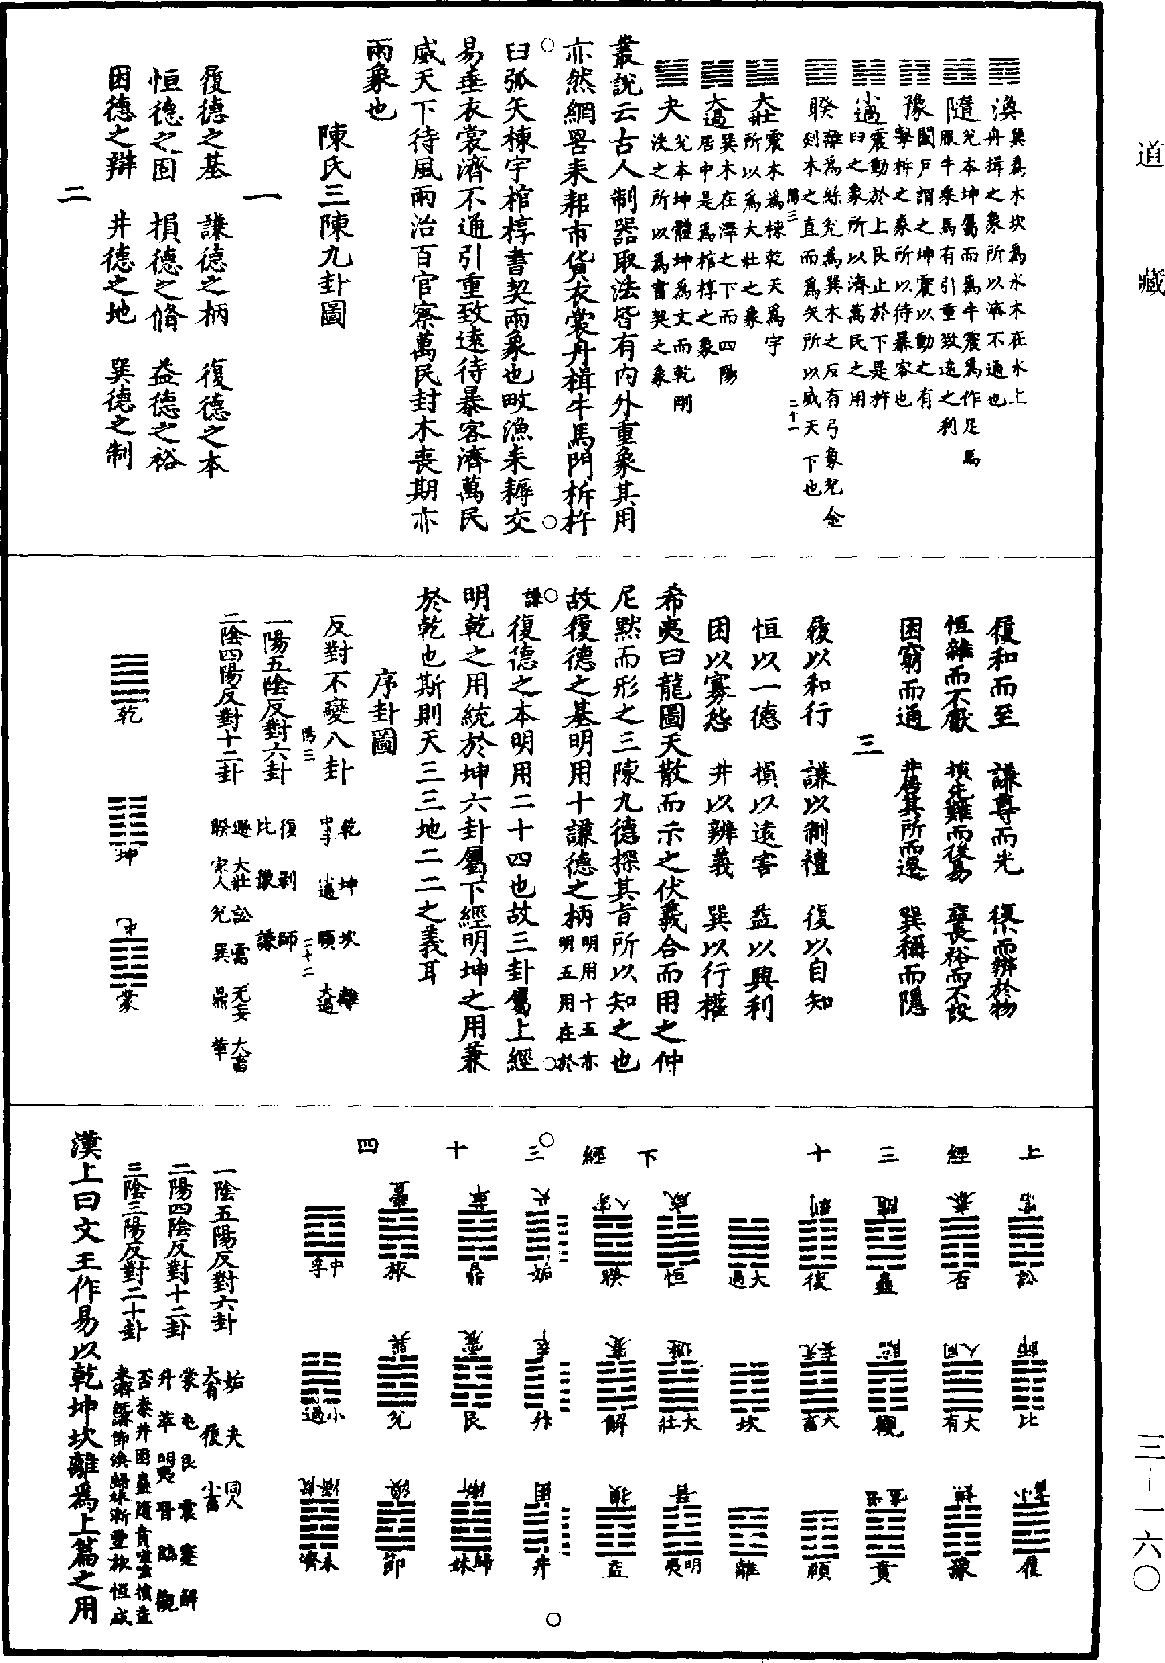 道藏
三－一六〇
渙 巽爲木坎爲水木在水上
舟楫之象所以濟不通也
隨 兌本坤屬而爲牛震爲作足馬
服牛乘馬有引重致遠之利
豫 闔戶謂之坤震以動之有
擊柝之象所以待暴客也
小過 震動於上艮止於下是杵
臼之象所以濟萬民之用
睽 離爲絲兌爲巽木之反有弓象兌金
剡木之直而爲矢所以威天下也
陽三 二十一
大壯 震木爲棟乾天爲宇
所以爲大壯之象
大過 巽木在澤之下而四陽
居中是爲棺椁之象
夬 兌本坤體坤爲文而乾剛
決之所以爲書契之象
叢說云古人制器取法皆有內外重象其用
亦然網罟耒耜市貨衣裳舟楫牛馬門柝杵
臼弧矢棟宇棺椁書契兩象也畋漁耒耨交
易垂衣裳濟不通引重致遠待暴客濟萬民
威天下待風雨治百官察萬民封木喪期亦
兩象也
陳氏三陳九卦圖
一
履德之基 謙德之柄 復德之本
恒德之固 損德之脩 益德之裕
困德之辯 井德之地 巽德之制
二
履和而至 謙尊而光 復小而辨於物
恒雜而不厭 損先難而後易 益長裕而不設
困窮而通 井居其所而遷 巽稱而隱
三
履以和行 謙以制禮 復以自知
恒以一德 損以遠害 益以興利
困以寡怨 井以辨義 巽以行權
希夷曰龍圖天散而示之伏羲合而用之仲
尼默而形之三陳九德探其旨所以知之也
故履德之基明用十謙德之柄明用十五亦
明五用在於
謙復德之本明用二十四也故三卦屬上經
明乾之用統於坤六卦屬下經明坤之用兼
於乾也斯則天三三地二二之義耳
序卦圖
反對不變八卦 乾 坤 坎 離
中孚 小過 頤 大過
陽三 二十二
一陽五陰反對六卦 復 剝 師
比 豫 謙
二陰四陽反對十二卦 遯 大壯 訟 需 无妄 大畜
睽 家人 兌 巽 鼎 革
乾
坤
屯
蒙
上經三十
需 訟
泰 否
隨 蠱
剝 復
大過
師 比
同人 大有
臨 觀
无妄 大畜
坎
小畜 履
謙 豫
噬嗑 賁
頤
離
下經三十四
咸 恒
家人 睽
夬 姤
革 鼎
豐 旅
中孚
遯 大壯
蹇 解
萃 升
震 艮
巽 兌
小過
晉 明夷
損 益
困 井
漸 歸妹
渙 節
既濟 未濟
一陰五陽反對六卦 姤 夬 同人
大有 履 小畜
二陽四陰反對十二卦 蒙 屯 艮 震 蹇 解
升 萃 明夷 晉 臨 觀
三陰三陽反對二十卦 否 泰 井 困 蠱 隨 賁 噬嗑 損 益
未濟 既濟 節 渙 歸妹 漸 豐 旅 恒 咸
漢上曰文王作易以乾坤坎離爲上篇之用